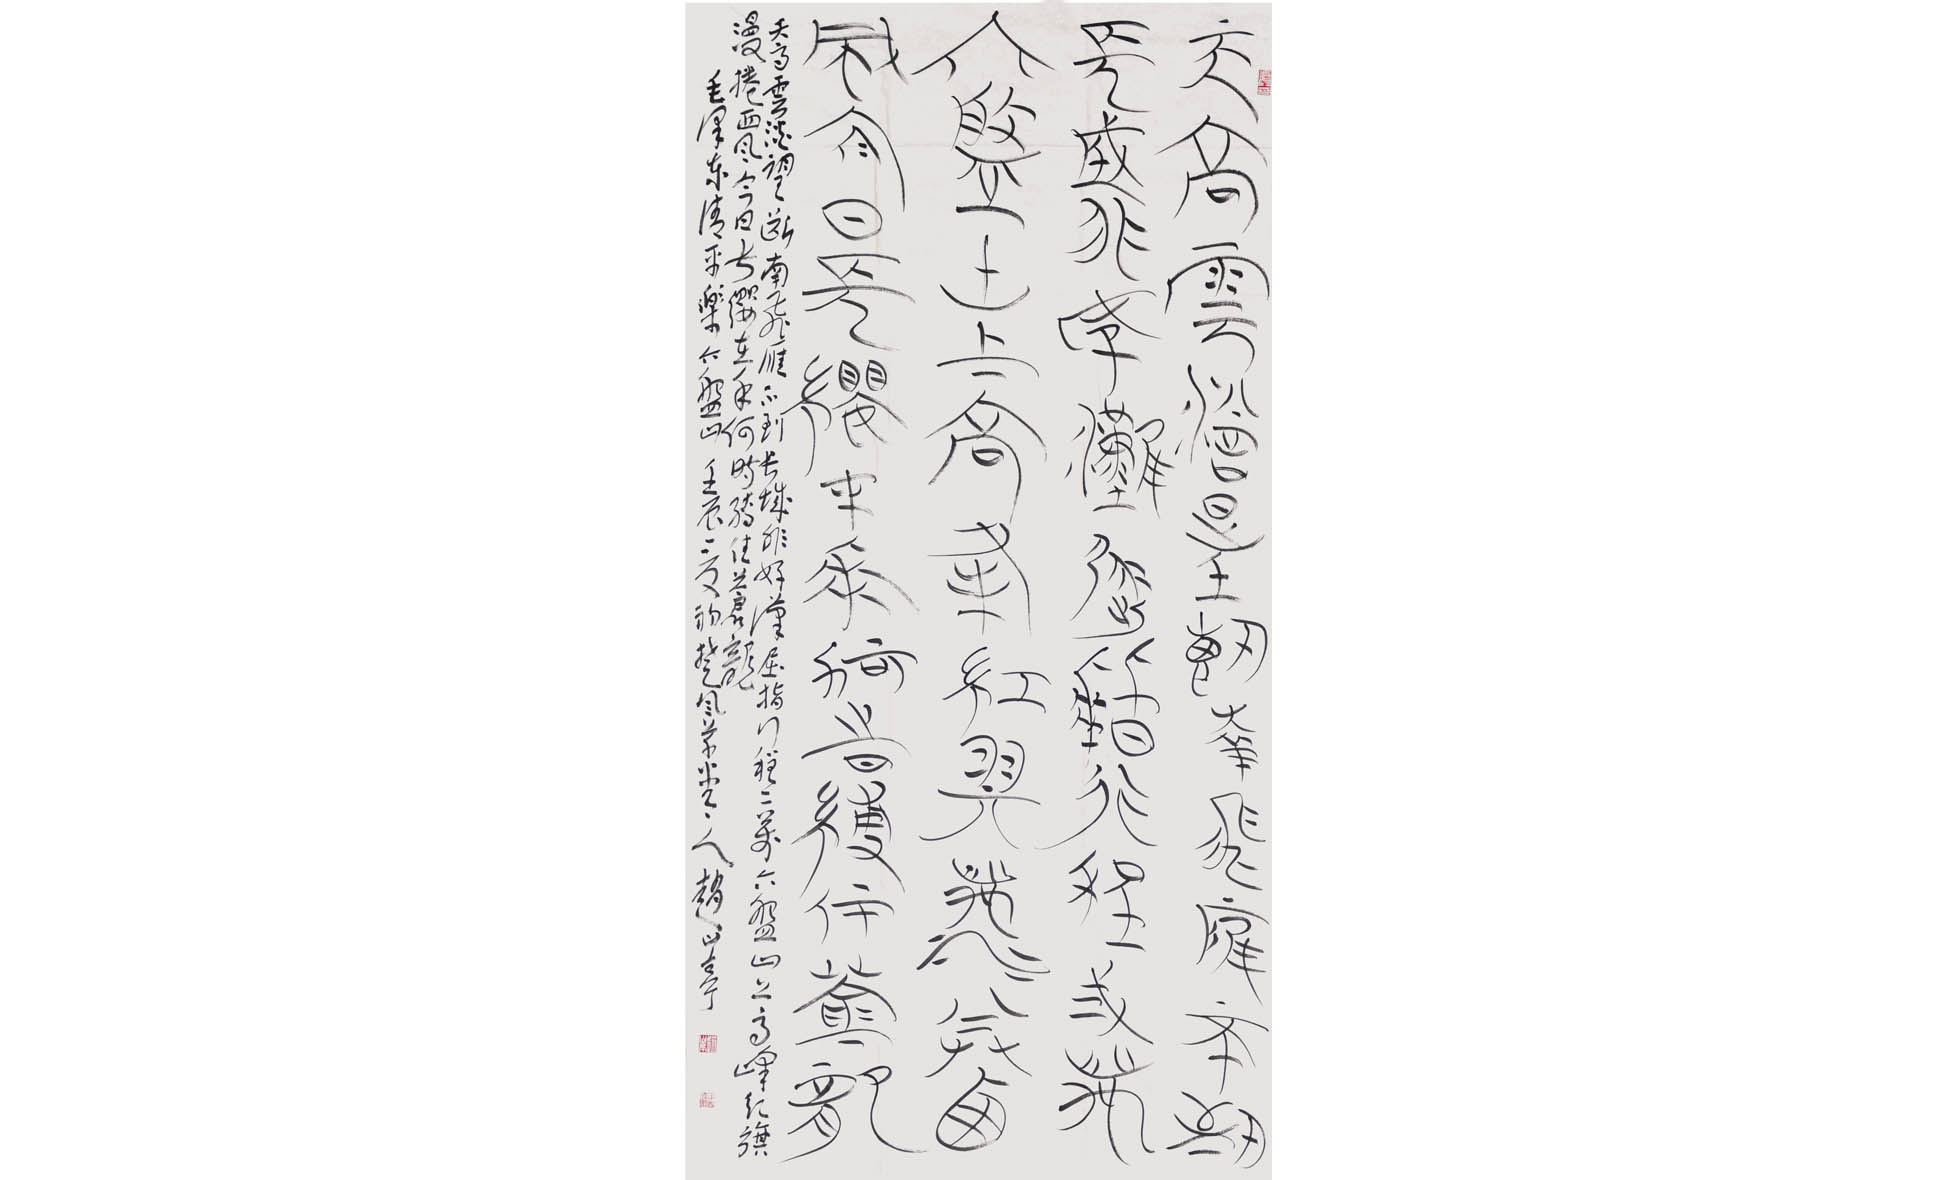 天高雲淡望斷南飛雁不到
長城非好漢屈指行程二萬
六盤山上高峰紅旗漫捲西
風今日長纓在手何時縛住蒼龍
天高雲淡望斷南飛雁不到长城非好漢屈指行程二萬六盤山上高峰红旗
漫捲西风今日长纓在手何時縛住蒼龍
毛澤东清平樂六盤山 壬辰之夏 楚风草堂主人趙山